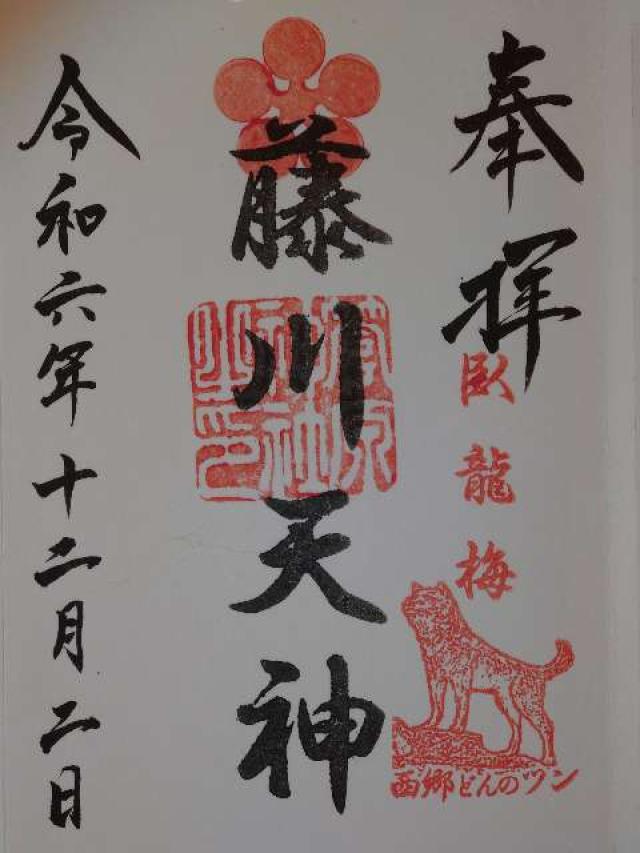 奉拝
臥龍梅
西郷どんのツン
藤川天神
令和六年十二月二日